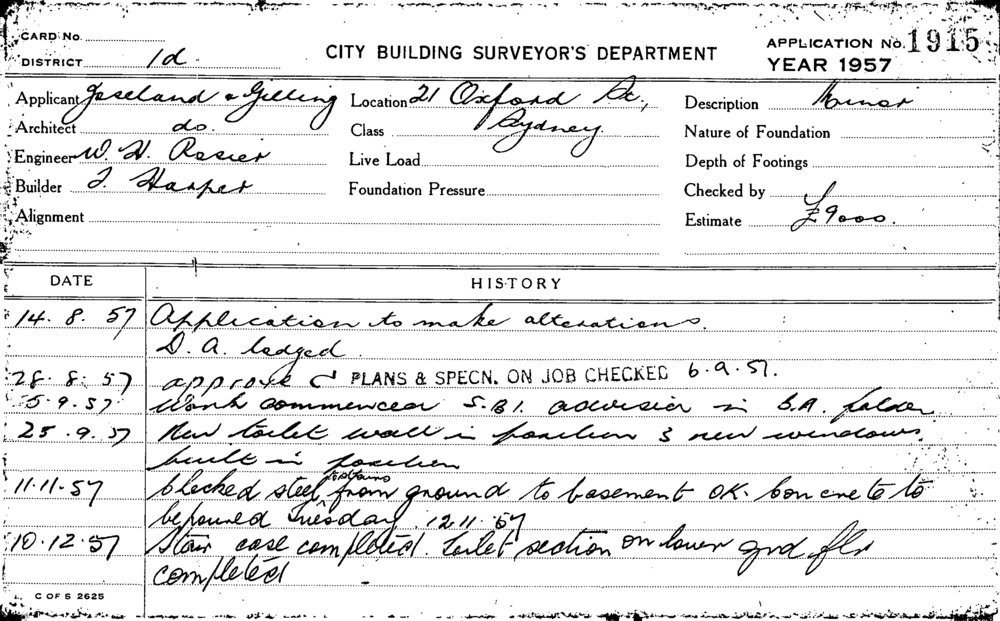 CARD No.
DISTRICT 1d.
CITY BUILDING SURVEYOR'S DEPARTMENT
APPLICATION No. 1915
YEAR 1957
Applicant Joseland & Gilling
Location 21 Oxford St.,
Description Minor
Architect do.
Class Sydney.
Nature of Foundation
Engineer W. H. Rosier
Live Load
Depth of Footings
Builder J. Harper
Foundation Pressure
Checked by
Alignment
Estimate £9000.
DATE HISTORY
14. 8. 57 Application to make alterations.
D. A. lodged.
28. 8. 57 approve PLANS & SPECN. ON JOB CHECKED 6.9.57.
5.9.57 Work commenced S.B.I. advised in B.A. folder
25.9.57 New toilet wall in position 3 new windows
built in position
11.11.57 Checked steel for stairs from ground to basement OK. Concrete to
be poured Tuesday 12.11.57
10.12.57 Stair case completed. Toilet section on lower grd flr
completed
C OF S 2625